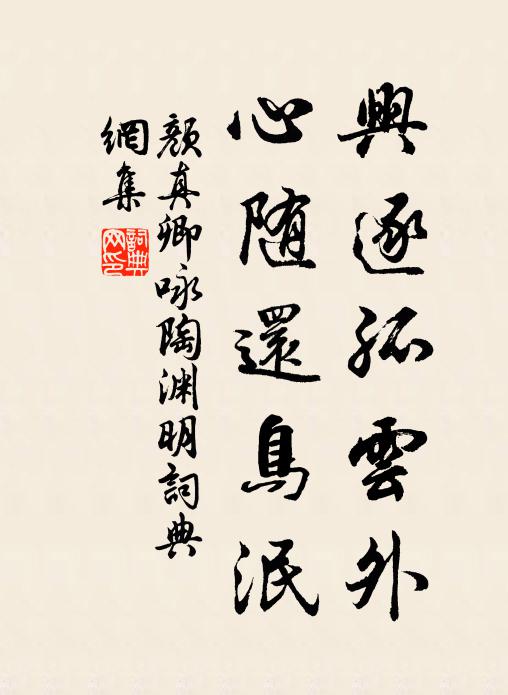 興逐孤雲外
心随還鳥泯
顏真卿咏陶渊明詞典
網集
詞典
网印